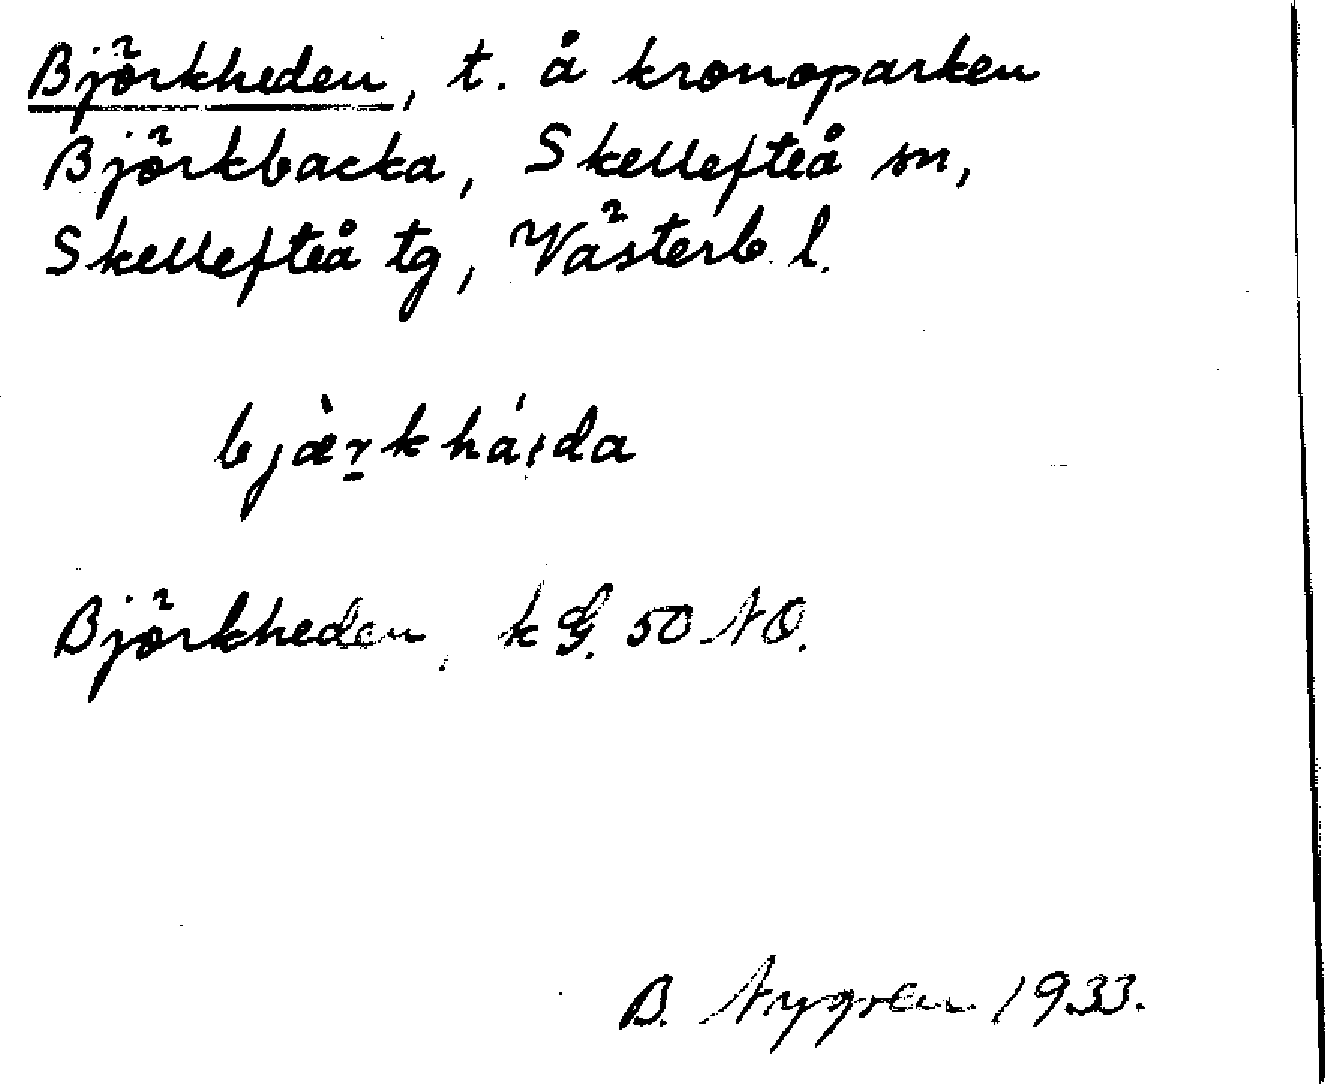 Björkheden, t. å kronoparken
Björkbacka, Skellefteå sn,
Skellefteå tg, Västerb. l.
bjæ̀r̠khá¡da
Björkheden, k G. 50 NO.
B. Nygren 1933.